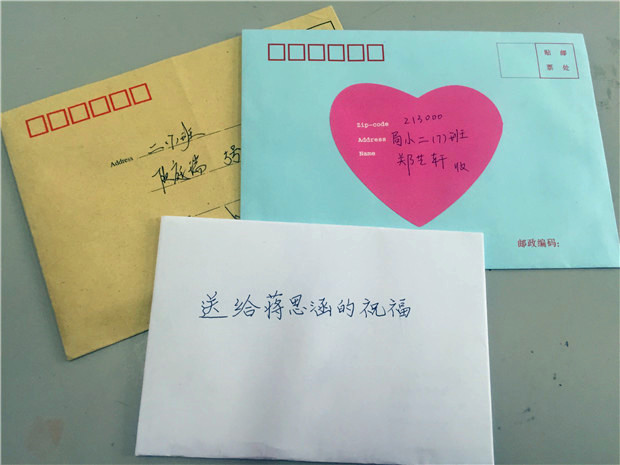 Address 二、7班
贴 邮
票 处
Zip-code 213000
Address 局小二(7)班
Name 郑芝轩 收
邮政编码:
送给蒋思涵的祝福